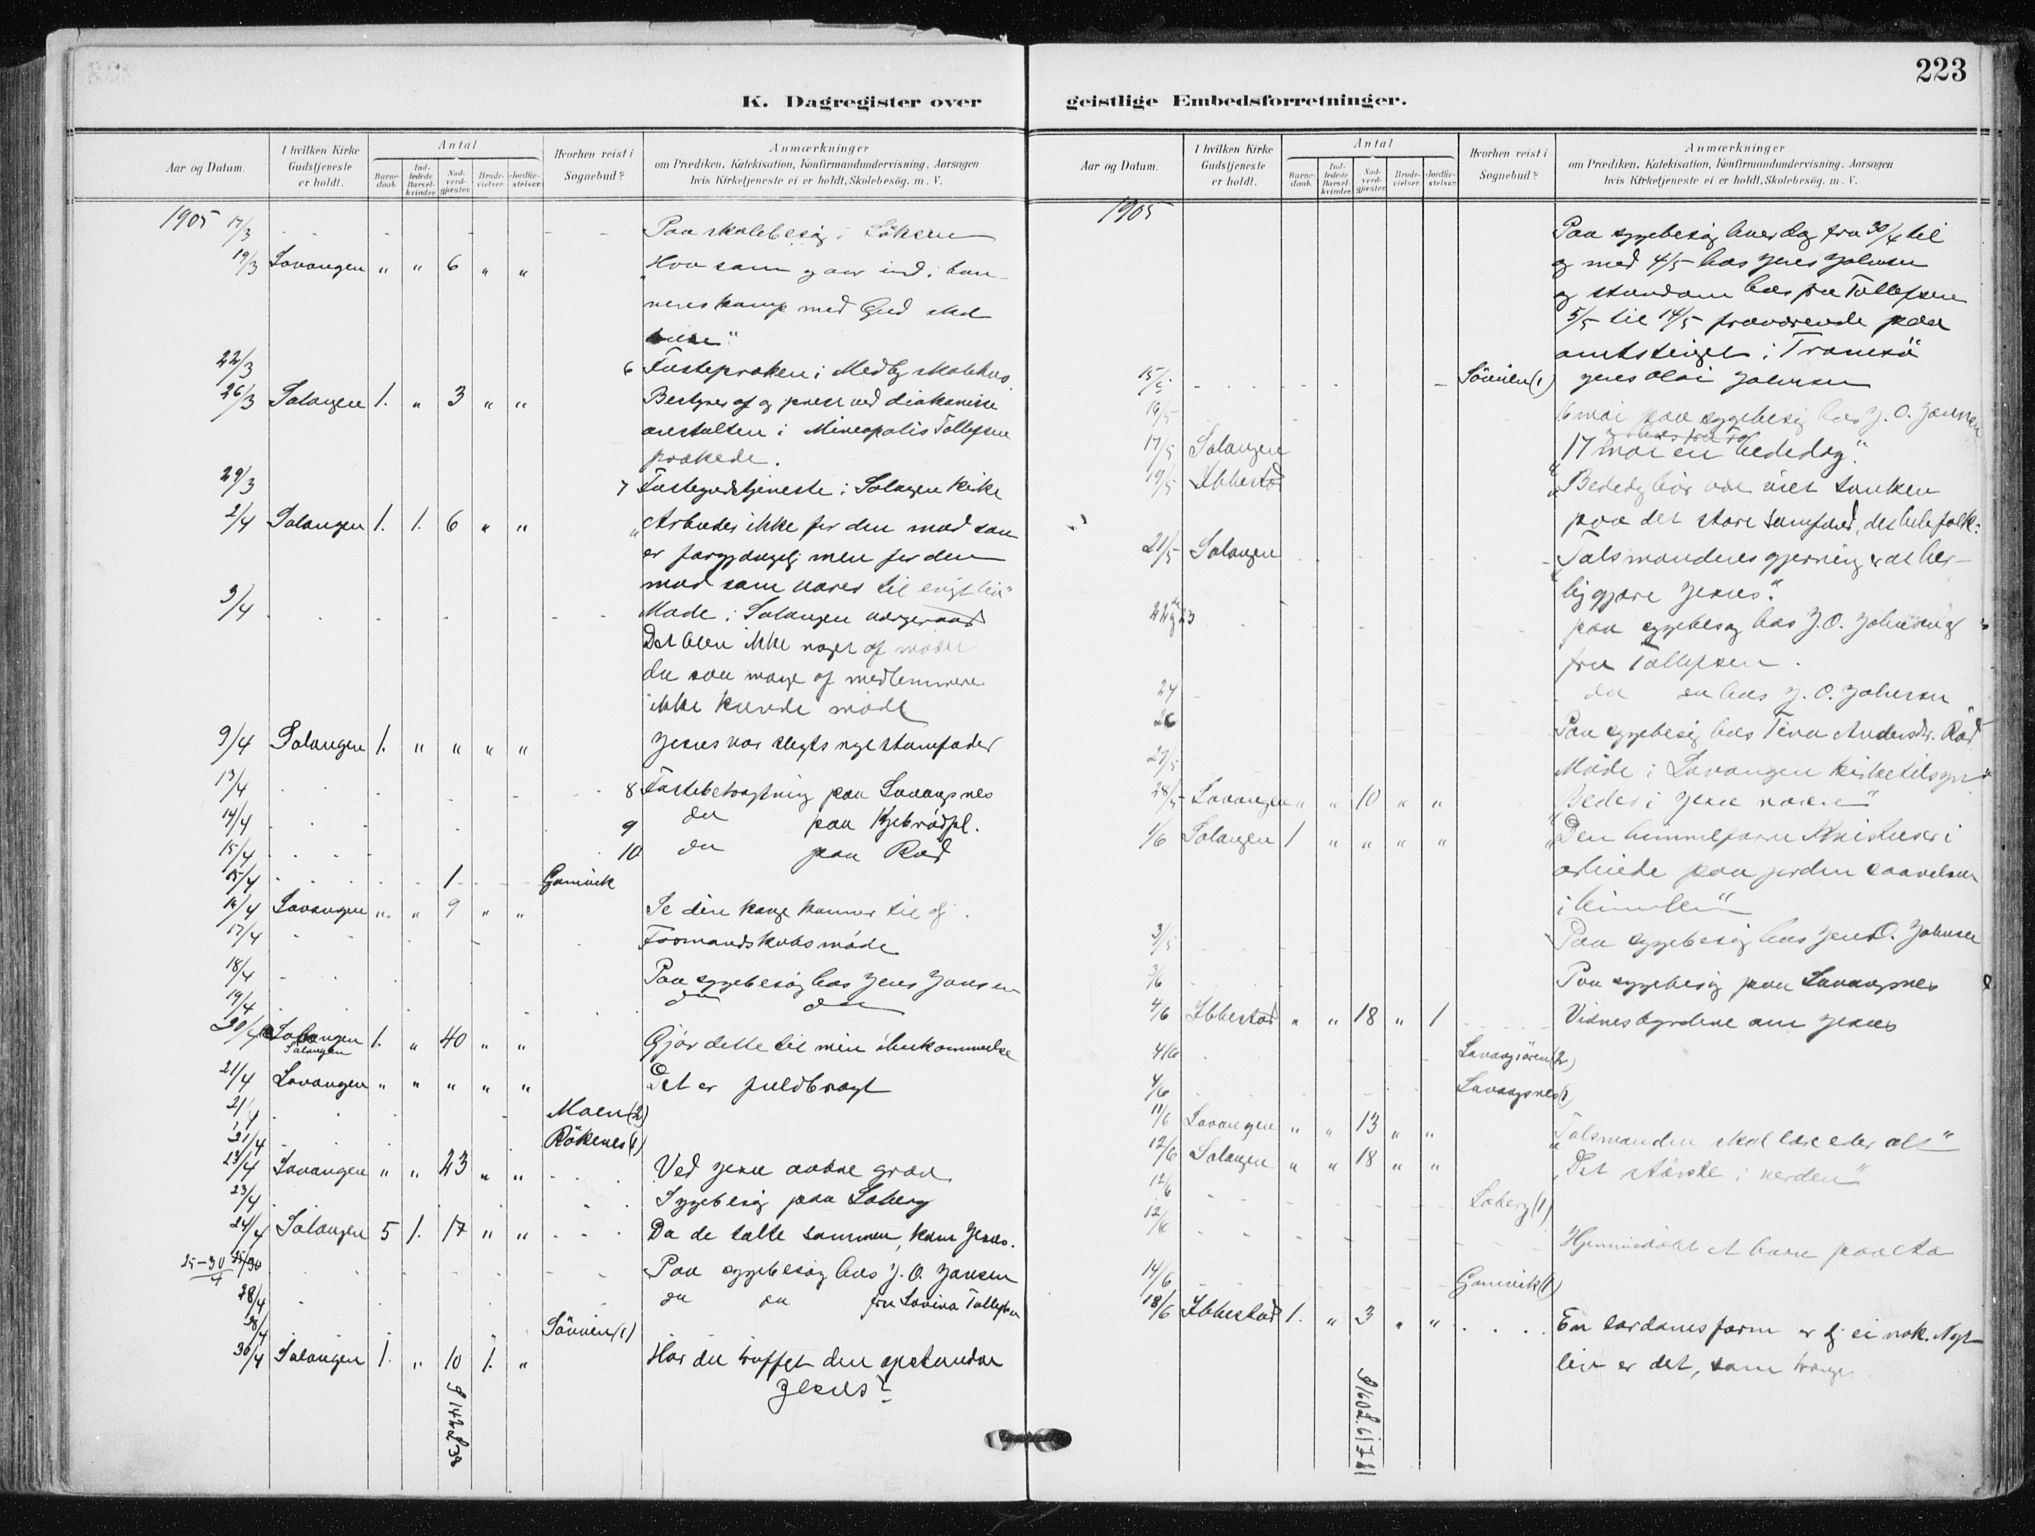 223
K. Dagregister over
geistlige Embedsforretninger.
Aar og Datum.
I hvilken Kirke Gudstjeneste er holdt.
Antal
Barnedaab.
Indledede Barselkvinder.
Nadverdgjæster.
Brudevielser.
Jordfæstelser.
Hvorhen reist i Sognebud?
Anmærkninger
om Prædiken, Katekisation, Konfirmandundervisning, Aarsagen
hvis Kirketjeneste ei er holdt, Skolebesøg. m. V.
1905 17/3 Paa skolebesøg i
19/3 Lavangen " " 6 " " Hvo som gaar ind i bøn-
neres kamp med Gud skal
22/3 6 Fastepræken i Medby skolehus.
26/3 Salangen 1. " 3 " " Bestyrer af og prest ved diakonisse
anstalten i Mineapolis Tollefsen
prækede.
29/3 7 Fastegudstjeneste i Salangen kirke
2/4 Salangen 1. 1. 6 " " "Arbeider ikke for den mad som
er forgjængelig men for den
mad som varer til evigt liv"
3/4 Møde i Salangen vergeraad
Det blev ikke noget af mødet
da saa mange af medlemmere
ikke kunde møde
9/4 Salangen 1. " " " " Jesus vor slegts nye stamfader
13/4 8 Fastebetragtning paa Lavangsnes
14/4 9 do paa
15/4 10 do paa Rød
15/4 1 Gamvik
16/4 Lavangen " " 9 " " Se din konge kommer til dig.
17/4 Formandskabsmøde
18/4 Paa sygebesøg hos Jens Jansen
19/4 do do
20/4 Salangen 1. " 40 " " Gjør dette til min ihukommelse
Salangen
21/4 Lavangen " " " " " Det er fuldbragt
21/4 Moen (2)
21/4 Røkenes (1)
23/4 Lavangen " " 23 " " Ved Jesu aabne grav
23/4 Sygebesøg paa Soberg
24/4 Salangen 5 1. 17 " " Da de talte sammen, kom Jesus.
25-30/4 Paa sygebesøg hos J. O. Jansen
28/4 do do fru Lovina Tollefsen
28/4 (1)
30/4 Salangen 1. " 10 1. " Har du truffet den opstandne
Jesus?
1905
Paa sygebesøg hver dag fra 30/4 til
og med 4/5 hos Jens Johnsen
og standom hos fru Tollefsen
5/5 til 14/5 fraværende paa
amtstinget i Tromsø
15/5 (1) Jens Olai Johnsen
16/5 16 mai paa sygebesøg hos J. O. Jansen
17/5 Salangen "17 mai en bededag".
19/5 Ibbestad
paa det store samfund, det hele folk.
21/5 Salangen "Talsmandens gjerning er at her-
liggjøre Jesus".
22 og 23 paa sygebesøg hos J. O. Johnsen og
fru Tollefsen.
24 do do hos J. O. Johnsen
26 Paa sygebesøg hos Tina Andersdr. Rød
27/5 Møde i Lavangen kirketilsyn
28/5 Lavangen " " 10 " " "Beder i Jesu navn"
1/6 Salangen 1 " " " " "Den himmelfarne Kristus er i
arbeide paa jorden saavelsom
i himlen"
3/5 Paa sygebesøg hos Jens O. Johnsen
3/6 Paa sygebesøg paa Lavangsnes
4/6 Ibbestad " " 18 " 1 Vidnesbyrdene om Jesus
4/6 (2)
4/6 Lavangsnes (1)
11/6 Lavangen " " 13 " " "Talsmanden skal lære eder alt"
12/6 Salangen " " 18 " " "Det største i verden"
12/6 Soberg (1)
12/6 Hjemmedøbt et barn paa
14/6 Gamvik (1)
18/6 Ibbestad 1. " 3 " " En sædvanesform er dg ei nok. Nyt
liv er det, som trænges